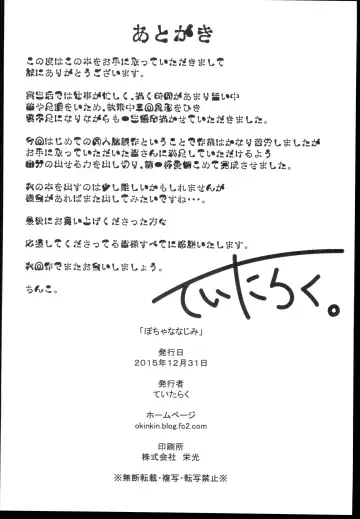 あとがき
この度はこの本をお手に取っていただきまして
誠にありがとうございます。
は仕事が忙しく、描く時間があまり無い中
を
ながらも一生懸命描かせていただきました。
今回はじめての同人誌製作ということで作業はかなり苦労しましたが
お手に取っていただいた皆さんに満足していただけるよう
自分の出せる力を出し切り、精一杯愛情こめて完成させました。
次の本を出すのは少し難しいかもしれませんが
機会があればまた出してみたいですね…。
最後にお買い上げくださった方々
応援してくださってる皆様すべてに感謝いたします。
次回作でまたお会いしましょう。
ちんこ。
ていたらく。
「ぽちゃななじみ」
発行日
2015年12月31日
発行者
ていたらく
ホームページ
okinkin.blog.fc2.com
印刷所
株式会社 栄光
※無断転載・複写・転写禁止※